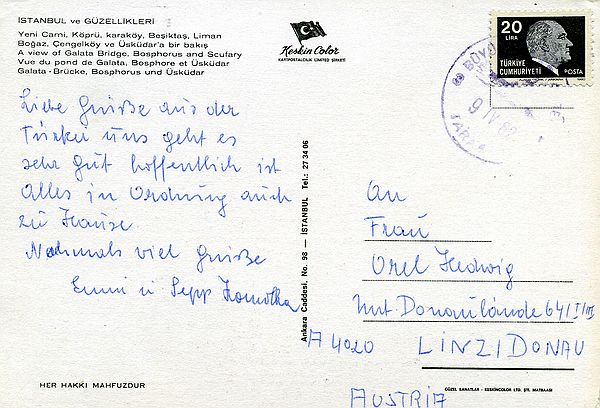 İSTANBUL ve GÜZELLİKLERİ
Yeni Cami, Köprü, karaköy, Beşiktaş, Liman
Boğaz, Çengelköy ve Üsküdar'a bir bakış
A view of Galata Bridge, Bosphorus and Scufary
Vue du pond de Galata, Bosphore et Üsküdar
Galata - Brücke, Bosphorus und Üsküdar
Keskin Color
KARTPOSTALCILIK LİMİTED ŞİRKETİ
20
LİRA
TÜRKİYE
CUMHURİYETİ
POSTA
9 IV 82
Liebe Grüße aus der
Türkei uns geht es
sehr gut hoffentlich ist
Alles in Ordnung auch
zu Hause
Nochmals viel Grüße
Emmi u Sepp
Ankara Caddesi, No. 98 — İSTANBUL Tel.: 27 34 06
An
Frau
Orel Hedwig
Unt Donaulände 64/I/III
A 4020 LINZ/DONAU
AUSTRIA
HER HAKKI MAHFUZDUR
GÜZEL SANATLAR - KESKİNCOLOR LTD. ŞTİ. MATBAASI